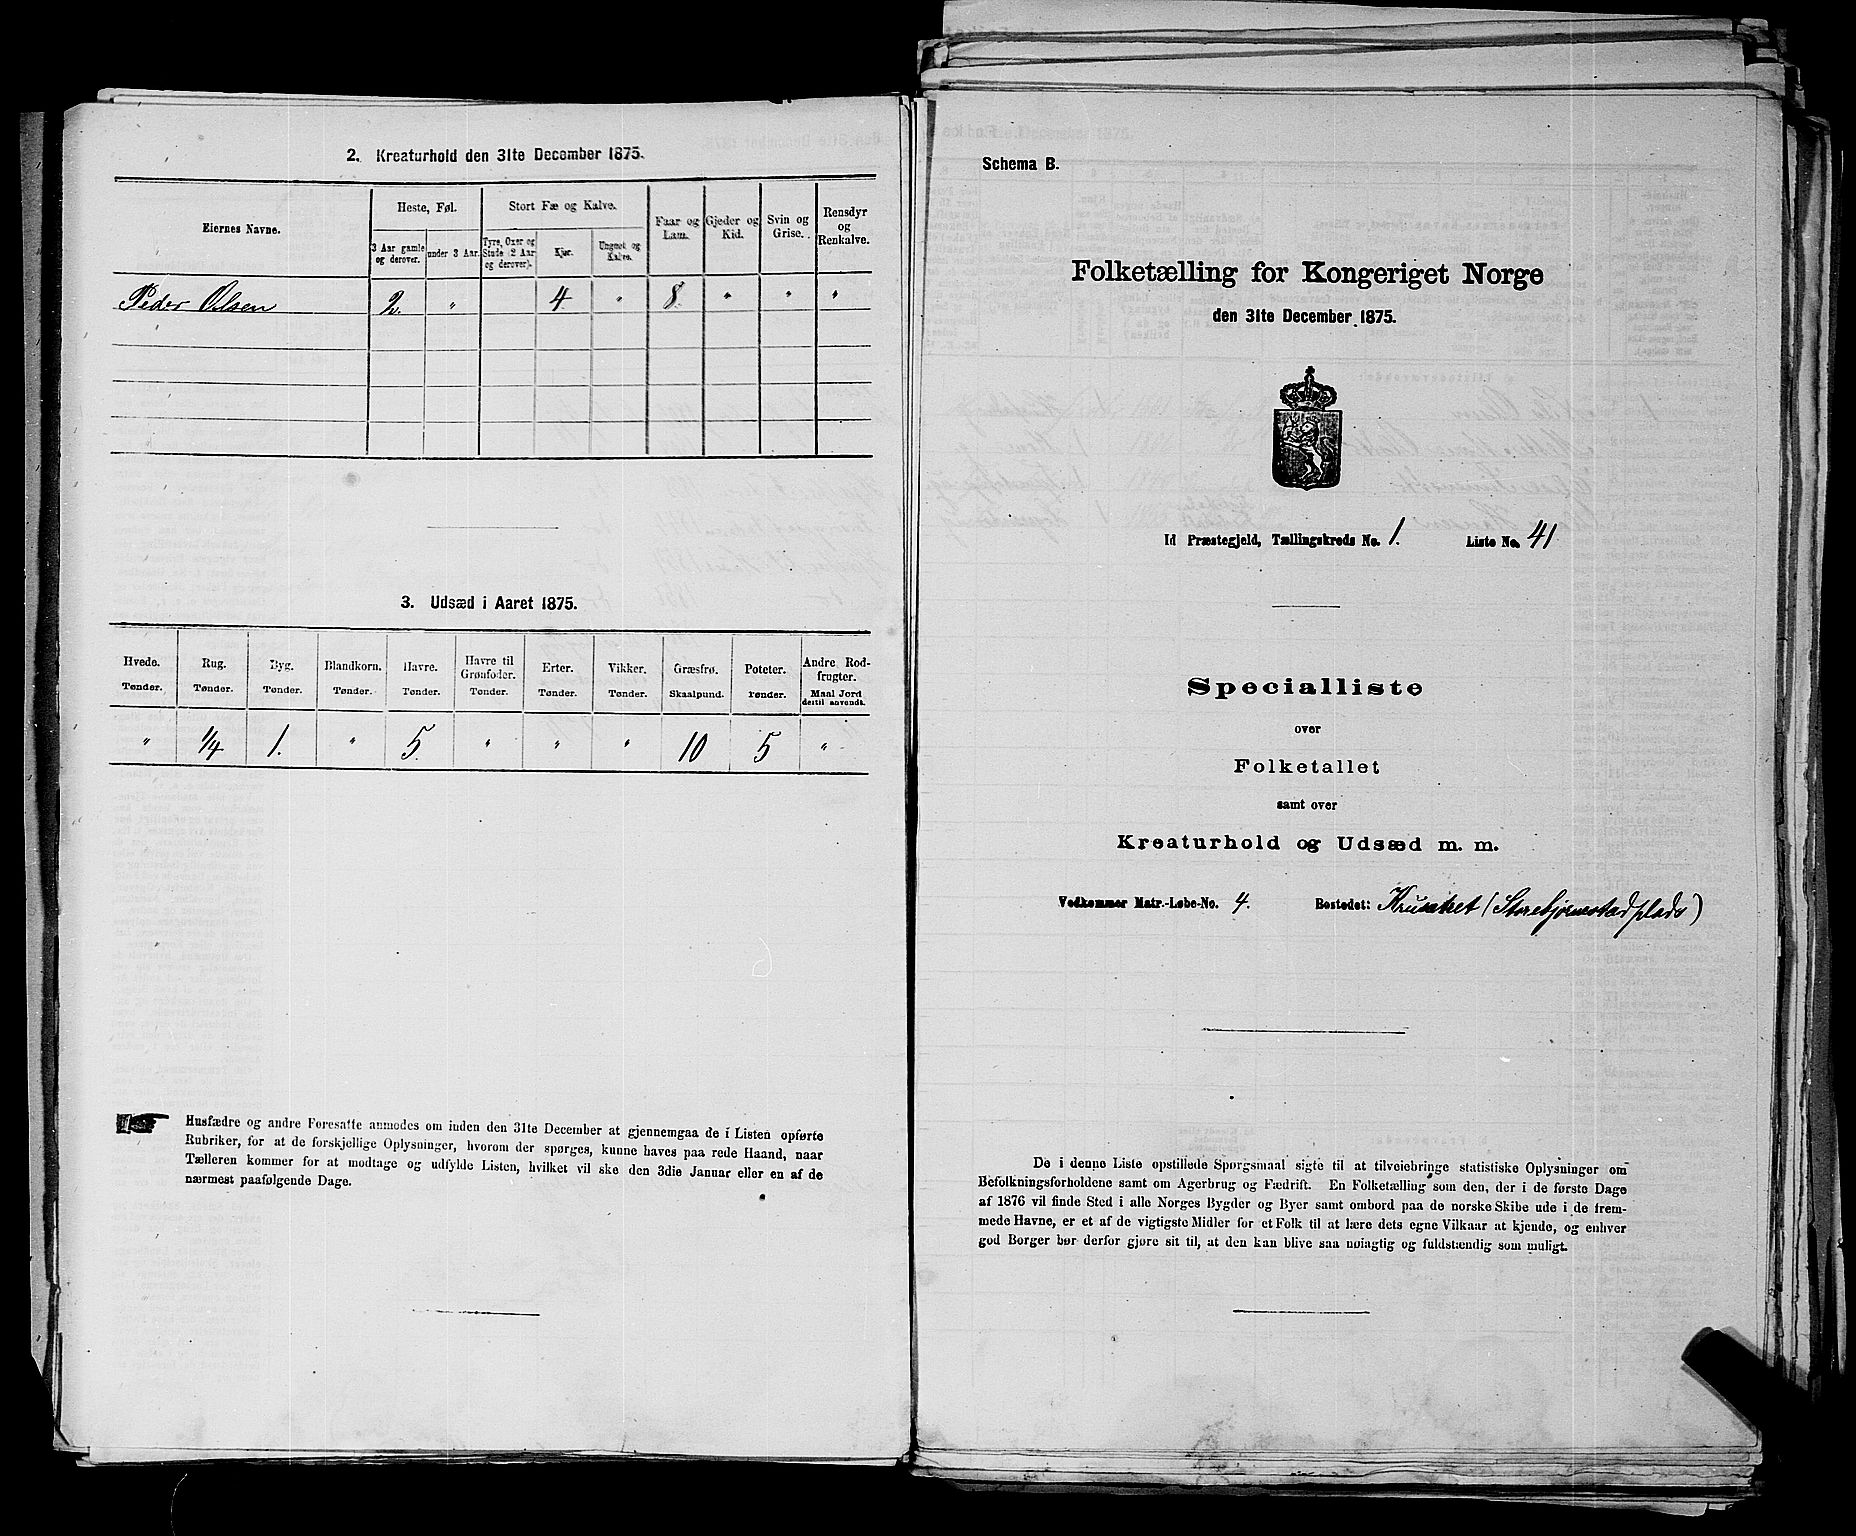 2. Kreaturhold den 31te December 1875.
Eiernes Navne.
Heste, Føl.
Stort Fæ og Kalve.
Faar og Lam.
Gjeder og Kid.
Svin og Grise.
Rensdyr og Renkalve.
3 Aar gamle og derover.
under 3 Aar.
Tyre, Oxer og Stude (2 Aar og derover).
Kjør.
Ungnøt og Kalve.
Peder Olsen 2. " 4 " 8. " " "
3. Udsæd i Aaret 1875.
Hvede. Rug. Byg. Blandkorn. Havre. Havre til Grønfoder. Erter. Vikker. Græsfrø. Poteter. Andre Rodfrugter.
Tønder. Tønder. Tønder. Tønder. Tønder. Tønder. Tønder. Tønder. Skaalpund. Tønder. Maal Jord dertil anvendt.
" 1/4 1. " 5. " " " 10 5 "
Husfædre og andre Foresatte anmodes om inden den 31te December at gjennemgaa de i Listen opførte
Rubriker, for at de forskjellige Oplysninger, hvorom der spørges, kunne haves paa rede Haand, naar
Tælleren kommer for at modtage og udfylde Listen, hvilket vil ske den 3die Januar eller en af de
nærmest paafølgende Dage.
Schema B.
Folketælling for Kongeriget Norge
den 31te December 1875.
Id Præstegjeld, Tællingskreds No. 1. Liste No. 41
Specialliste
over
Folketallet
samt over
Kreaturhold og Udsæd m. m.
Vedkommer Matr.-Løbe-No. 4. Bostedet: (Storebjørnestad plads)
De i denne Liste opstillede Spørgsmaal sigte til at tilveiebringe statistiske Oplysninger om
Befolkningsforholdene samt om Agerbrug og Fædrift. En Folketælling som den, der i de første Dage
af 1876 vil finde Sted i alle Norges Bygder og Byer samt ombord paa de norske Skibe ude i de frem-
mede Havne, er et af de vigtigste Midler for et Folk til at lære dets egne Vilkaar at kjende, og enhver
god Borger bør derfor gjøre sit til, at den kan blive saa nøiagtig og fuldstændig som muligt.